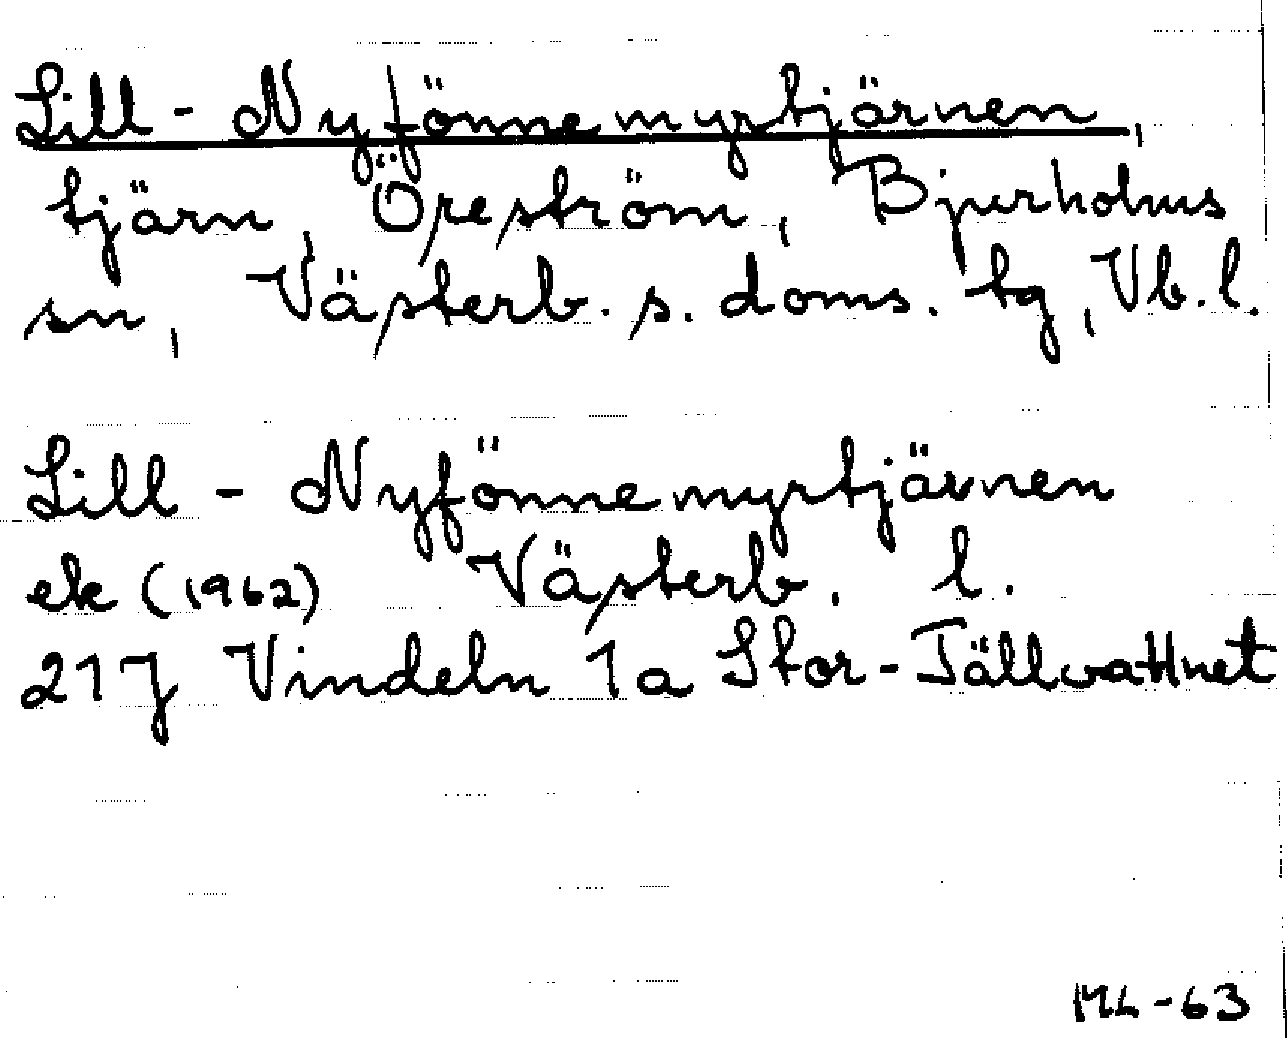 Lill-Nyfönnemyrtjärnen,
tjärn, Öreström, Bjurholms
sn, Västerb. s. doms. tg, Vb.l.
Lill-Nyfönnemyrtjärnen
ek (1962) Västerb. l.
21J Vindeln 1a Stor-Tällvattnet
ML-63